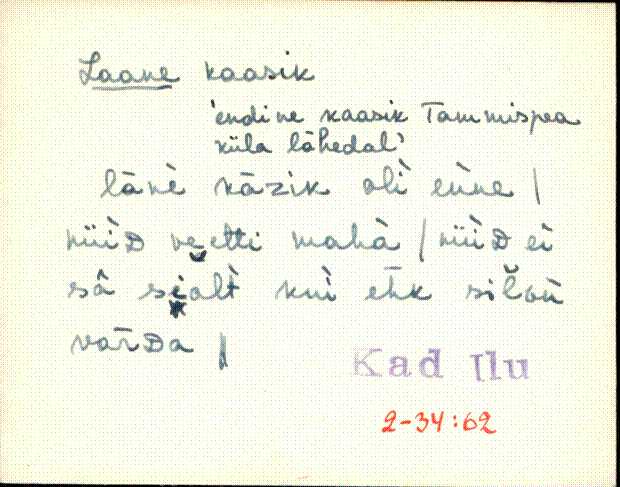 Laane kaasik
'endine kaasik Tammispea
küla lähedal'
lānè kāzik olì eǜne |
nüìD veetti mahà | nüìD ei
sā sialt̀ kuì ehk silʹoù
vārDa |
Kad Ilu
2-34:62